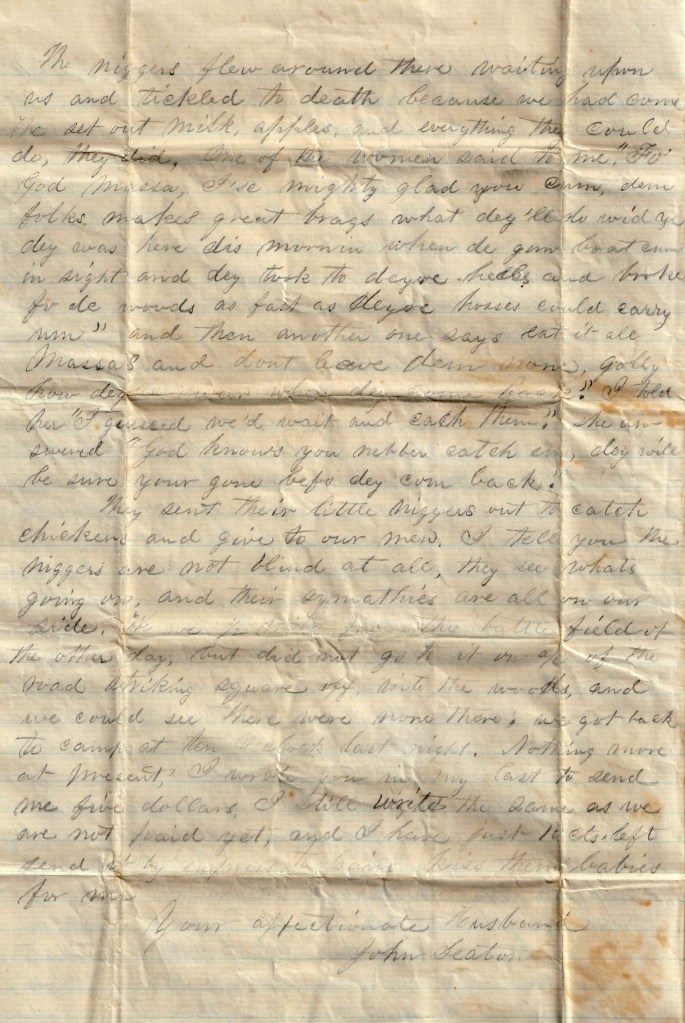 The niggers flew around there waiting upon
us and tickled to death because we had come
set out milk, apples, and everything they could
do, they did, One of the women said to me, "Fo'
God Massa, I'se mighty glad you cum, dem
folks makes great brags what dey'll do wid ye
dey was here dis mornin when de gun boat cum
in sight and dey took to deyre heels and broke
fo de woods as fast as deyre hosses could carry
um" and then another one says eat it all
Massa's and dont leave dem none, golly
how dey dey come back." I told
her "I guessed we'd wait and cach them." she an-
swered "God knows you nebber catch em, dey will
be sure your gone befo dey com back."
They sent their little niggers out to catch
chickens and give to our men. I tell you the
niggers are not blind at all, they see whats
going on, and their symathies are all on our
side. We field of
the other day, but did not go to it on of the
road striking square off into the woods, and
we could see there were none there; we got back
to camp at ten o'clock last night. Nothing more
at present, I wrote you in my last to send
me five dollars, I still write the same as we
are not paid yet, and I have just 10 cts. left
send it by babies
for me
Your affectionate Husband
John Seaton